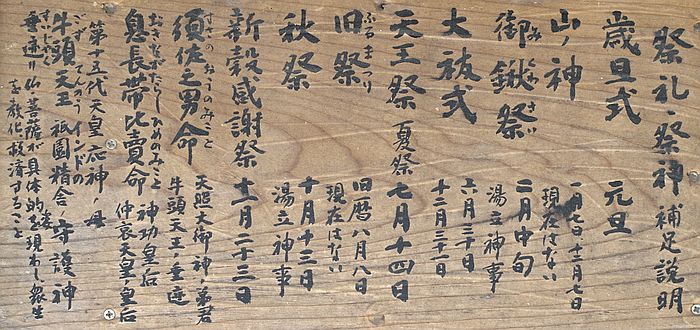 祭礼・祭神補足説明
歳旦式 元旦
山ノ神 一月七日・十二月七日
現在はない
御鍬祭 二月中旬
みくわさい
湯立神事
大祓式 六月三十日
十二月三十一日
天王祭 夏祭 七月十四日
旧祭 旧暦八月八日
ふるまつり
現在はない
秋祭 十月十三日
湯立神事
新穀感謝祭 十一月二十三日
須佐之男命 天照大御神ノ弟君
すさのおのみこと
牛頭天王ノ垂迹
息長帯比賣命 神功皇后
おきながたらしひめのみこと
仲哀天皇ノ皇后
第十五代天皇 応神ノ母
牛頭天王 インドの
ごずてんのう
祇園精舎ノ守護神
垂迹ハ仏菩薩が具体的な姿を現わし衆生
すいじゃく
を教化救済すること